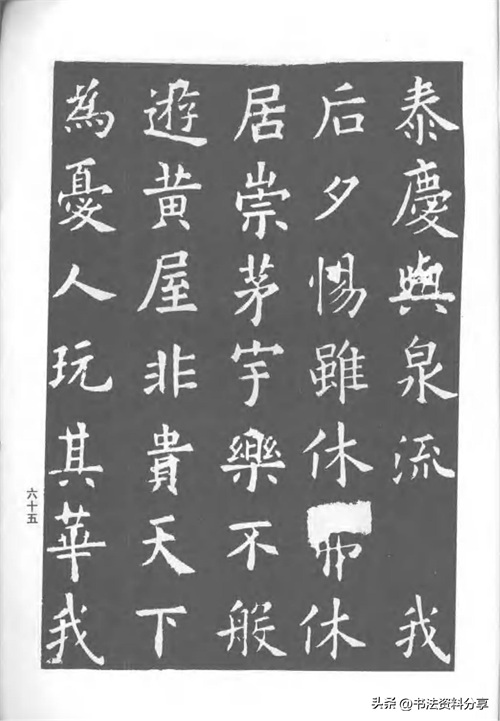 泰慶與泉流我
后夕惕雖休休
居崇茅宇樂不般
遊黃屋非貴天下
為憂人玩其華我
六十五
头条@书法资料分享